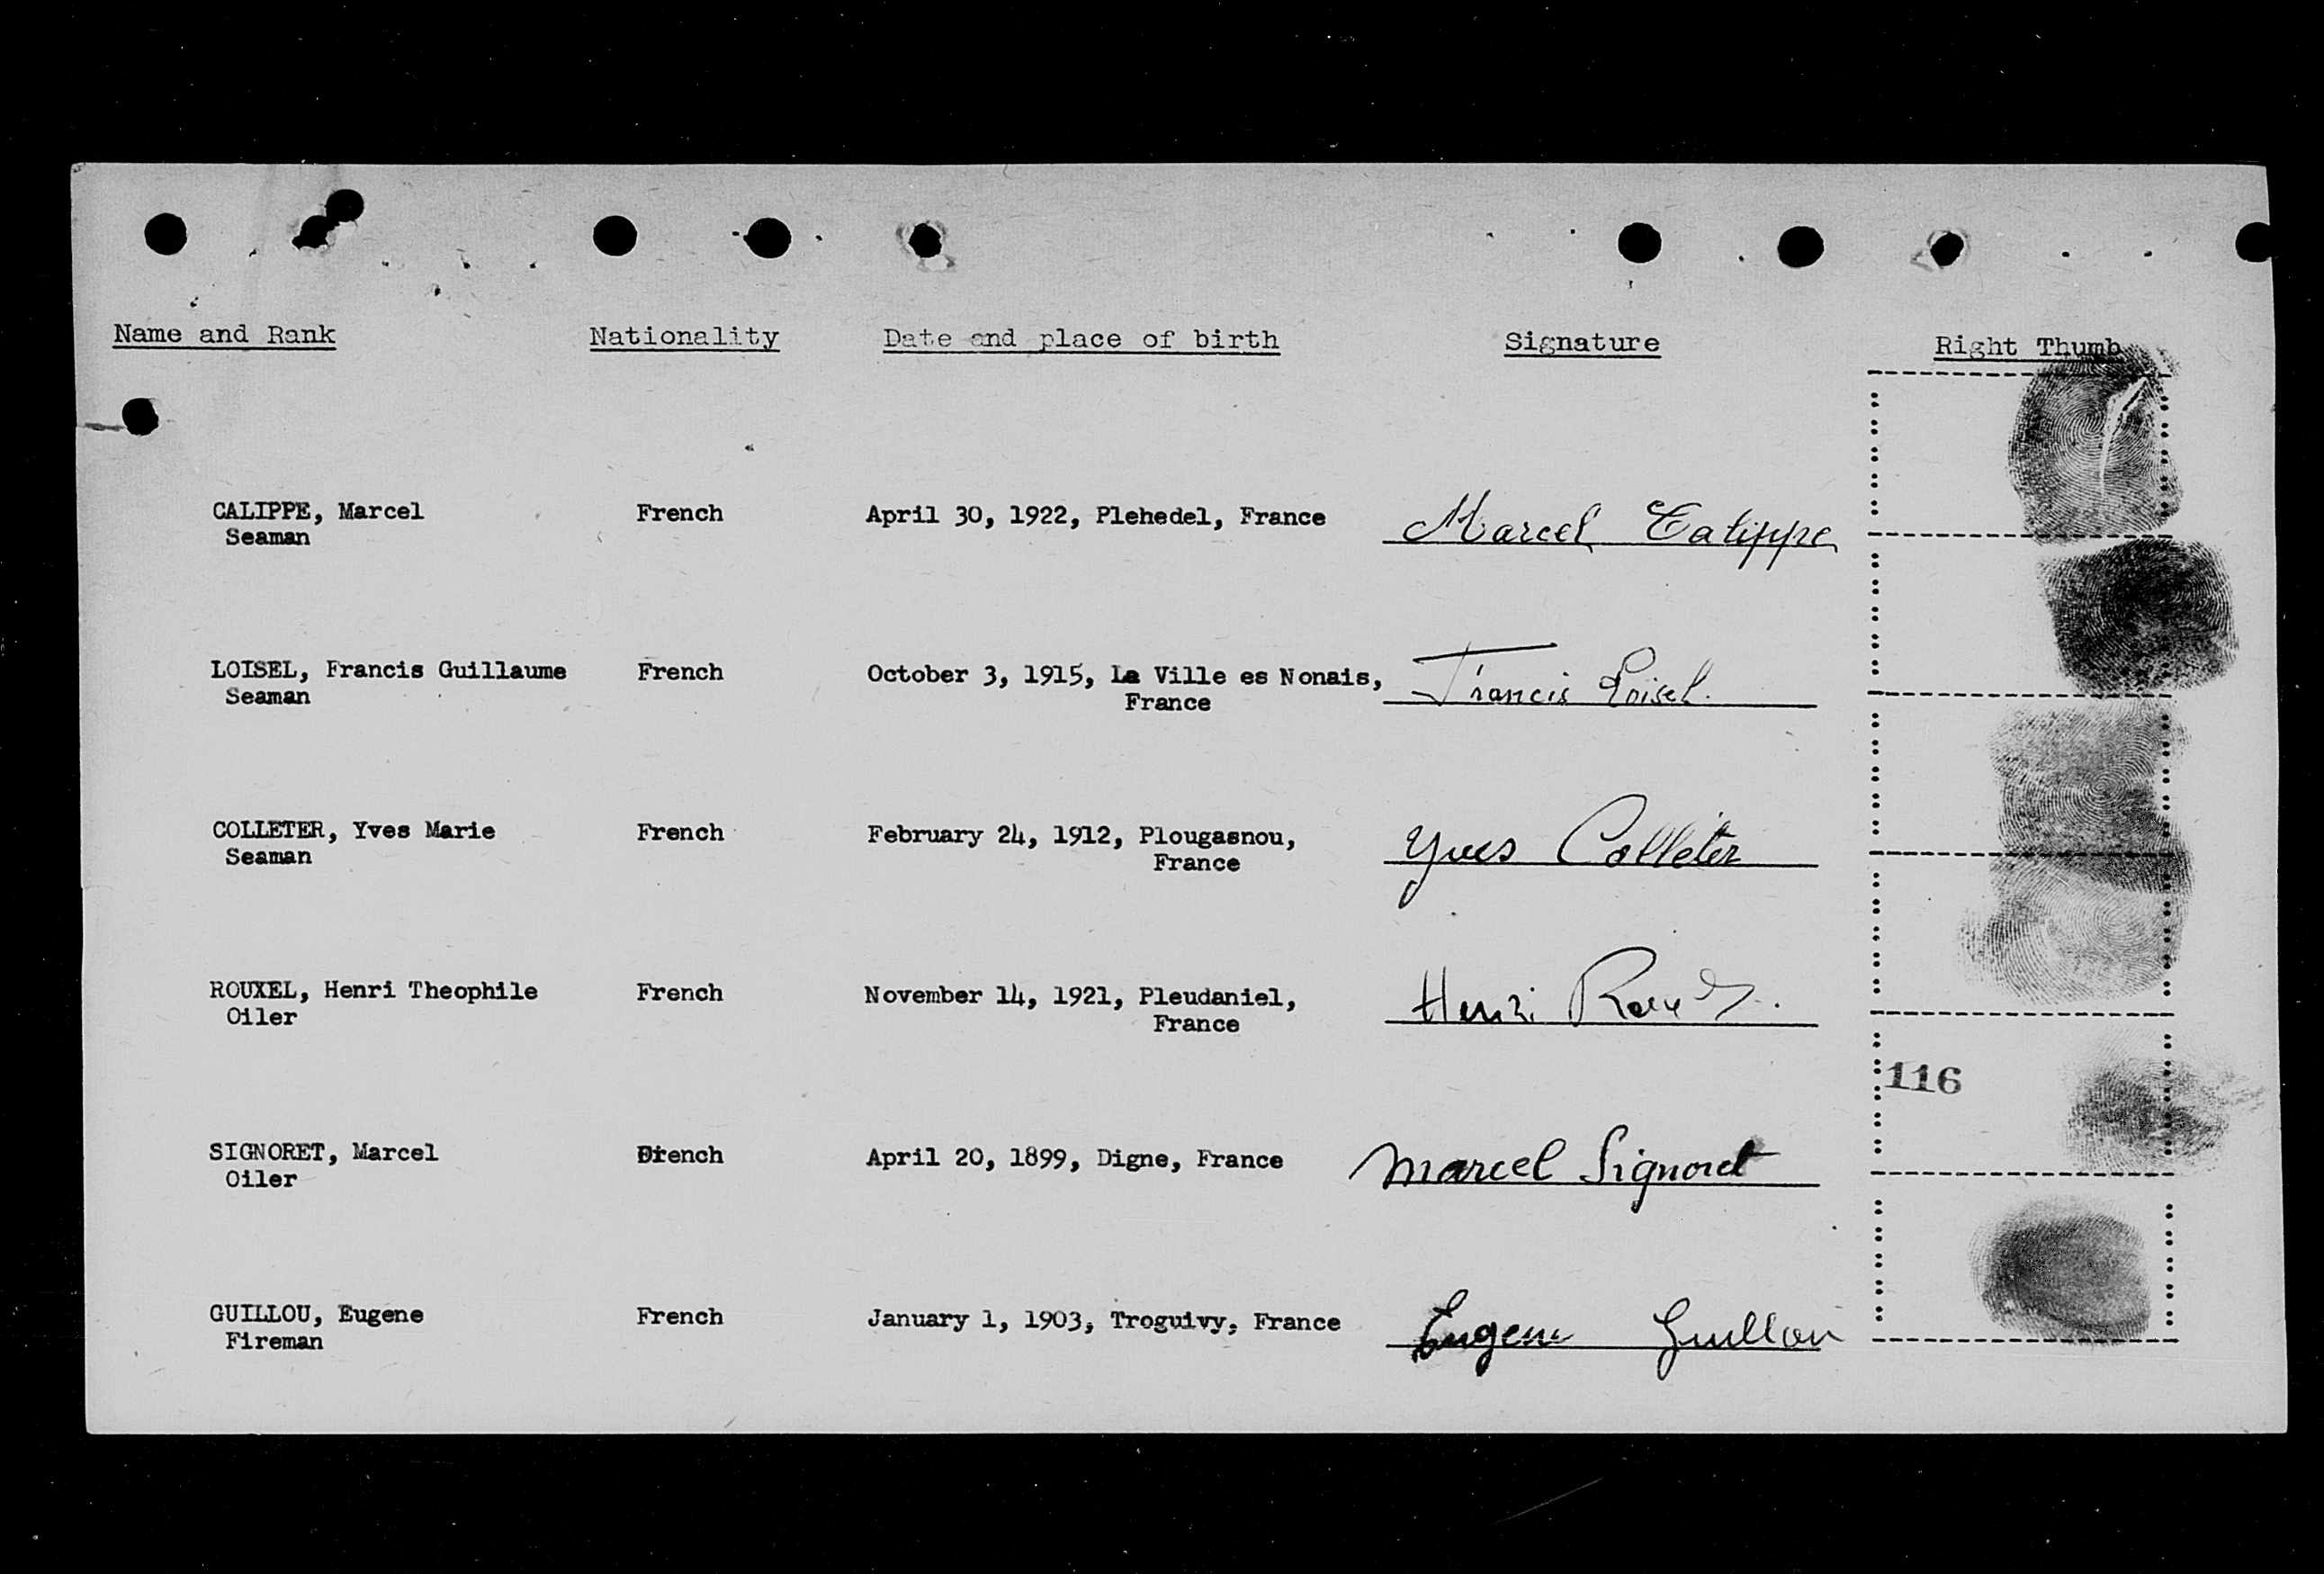 Name and Rank Nationality Date and place of birth Signature Right Thumb
CALIPPE, Marcel French April 30, 1922, Plehedel, France Marcel Calippe
Seaman
LOISEL, Francis Guillaume French October 3, 1915, La Ville es Nonais, Francis Loisel
Seaman France
COLLETER, Yves Marie French February 24, 1912, Plougasnou, Yves Colleter
Seaman France
ROUXEL, Henri Theophile French November 14, 1921, Pleudaniel, Henri
Oiler France
116
SIGNORET, Marcel French April 20, 1899, Digne, France Marcel Signoret
Oiler
GUILLOU, Eugene French January 1, 1903, Troguivy, France Eugene Guillou
Fireman